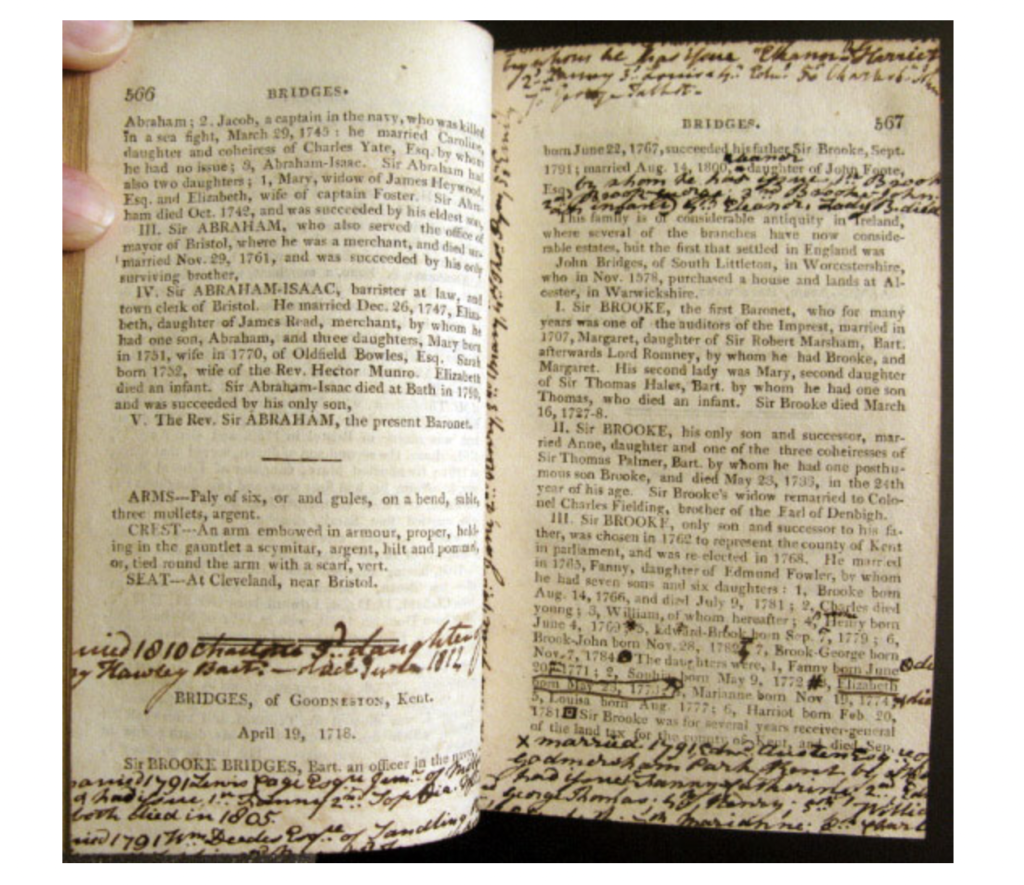 566 BRIDGES.
Abraham; 2. Jacob, a captain in the navy, who was killed
in a sea fight, March 29, 1745: he married Caroline,
daughter and coheiress of Charles Yate, Esq. by whom
he had no issue; 3, Abraham-Isaac. Sir Abraham had
also two daughters; 1, Mary, widow of James Heywood,
Esq. and Elizabeth, wife of captain Foster. Sir Abra-
ham died Oct. 1742, and was succeeded by his eldest son,
III. Sir ABRAHAM, who also served the office of
mayor of Bristol, where he was a merchant, and died un-
married Nov. 29, 1761, and was succeeded by his only
surviving brother,
IV. Sir ABRAHAM-ISAAC, barrister at law, and
town clerk of Bristol. He married Dec. 26, 1747, Eliza-
beth, daughter of James Read, merchant, by whom he
had one son, Abraham, and three daughters, Mary born
in 1751, wife in 1770, of Oldfield Bowles, Esq. Sarah
born 1752, wife of the Rev. Hector Munro. Elizabeth
died an infant. Sir Abraham-Isaac died at Bath in 1750,
and was succeeded by his only son,
V. The Rev. Sir ABRAHAM, the present Baronet.
ARMS—Paly of six, or and gules, on a bend, sable,
three mullets, argent.
CREST—An arm embowed in armour, proper, hold-
ing in the gauntlet a scymitar, argent, hilt and pommel,
or, tied round the arm with a scarf, vert.
SEAT—At Cleveland, near Bristol.
1810 3d daughter
Hawley Bart. — 1812
BRIDGES, of GOODNESTON, Kent.
April 19, 1718.
Sir BROOKE BRIDGES, Bart. an officer in the
married 1791 Lewis Cage Esqre
had issue 1st Fanny 2nd Sophia
both died in 1805.
1791 Wm Deedes Esqre of Sandling
by whom he has issue Eleanor Harriet
2d Fanny
George Talbot.
BRIDGES. 567
born June 22, 1767, succeeded his father, Sir Brooke, Sept.
1791; married Aug. 14, 1800, Eleanor daughter of John Foote,
Esq. by whom he has issue 1st Brook
2nd Brook George 3rd Brook John
an infant Eleanor. Lady B. died
This family is of considerable antiquity in Ireland,
where several of the branches have now conside-
rable estates, but the first that settled in England was
John Bridges, of South Littleton, in Worcestershire,
who in Nov. 1578, purchased a house and lands at Al-
cester, in Warwickshire.
I. Sir BROOKE, the first Baronet, who for many
years was one of the auditors of the Imprest, married in
1707, Margaret, daughter of Sir Robert Marsham, Bart.
afterwards Lord Romney, by whom he had Brooke, and
Margaret. His second lady was Mary, second daughter
of Sir Thomas Hales, Bart. by whom he had one son
Thomas, who died an infant. Sir Brooke died March
16, 1727-8.
II. Sir BROOKE, his only son and successor, mar-
ried Anne, daughter and one of the three coheiresses of
Sir Thomas Palmer, Bart. by whom he had one posthu-
mous son Brooke, and died May 23, 1733, in the 24th
year of his age. Sir Brooke's widow remarried to Colo-
nel Charles Fielding, brother of the Earl of Denbigh.
III. Sir BROOKE, only son and successor to his fa-
ther, was chosen in 1762 to represent the county of Kent
in parliament, and was re-elected in 1768. He married
in 1765, Fanny, daughter of Edmund Fowler, by whom
he had seven sons and six daughters: 1, Brooke born
Aug. 14, 1766, and died July 9, 1781; 2, Charles died
young; 3, William, of whom hereafter; 4, Henry born
June 4, 1769; 5, Edward-Brook born Sep. 7, 1779; 6,
Brook-John born Nov. 28, 1782; 7, Brook-George born
Nov. 7, 1784. The daughters were, 1, Fanny born June
20, 1771; 2, Sophia born May 9, 1772; 3, Elizabeth
born May 23, 1773; 4, Marianne born Nov 19, 1774;
5, Louisa born Aug. 1777; 6, Harriot born Feb. 20,
1781. Sir Brooke was for several years receiver-general
of the land tax for the county of Kent, and died Sep.
x married 1791 Edwd Austen Esq.
Godmersham Park, Kent by
had issue Fanny Catherine 2nd Edwd
George Thomas; 4th Henry; 5th William
Marianne.